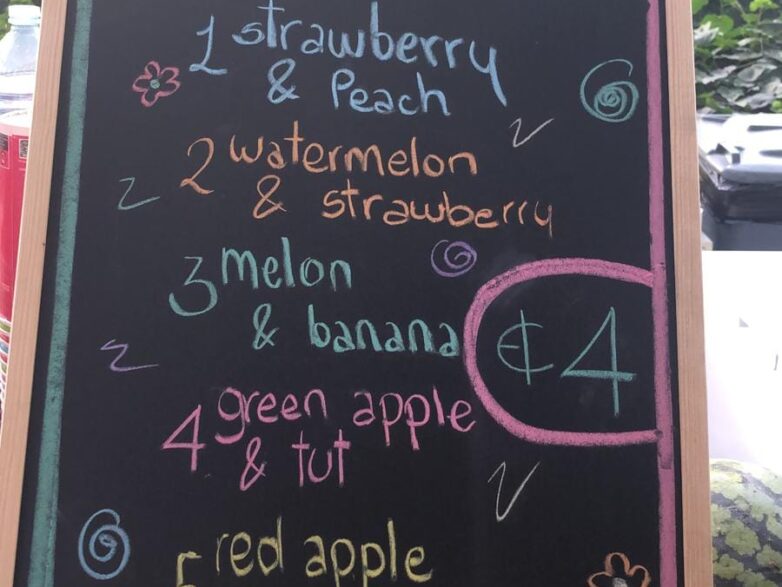 1 strawberry
& Peach
2 watermelon
& strawberry
3 melon
& banana
₾ 4
4 green apple
& tut
5 red apple